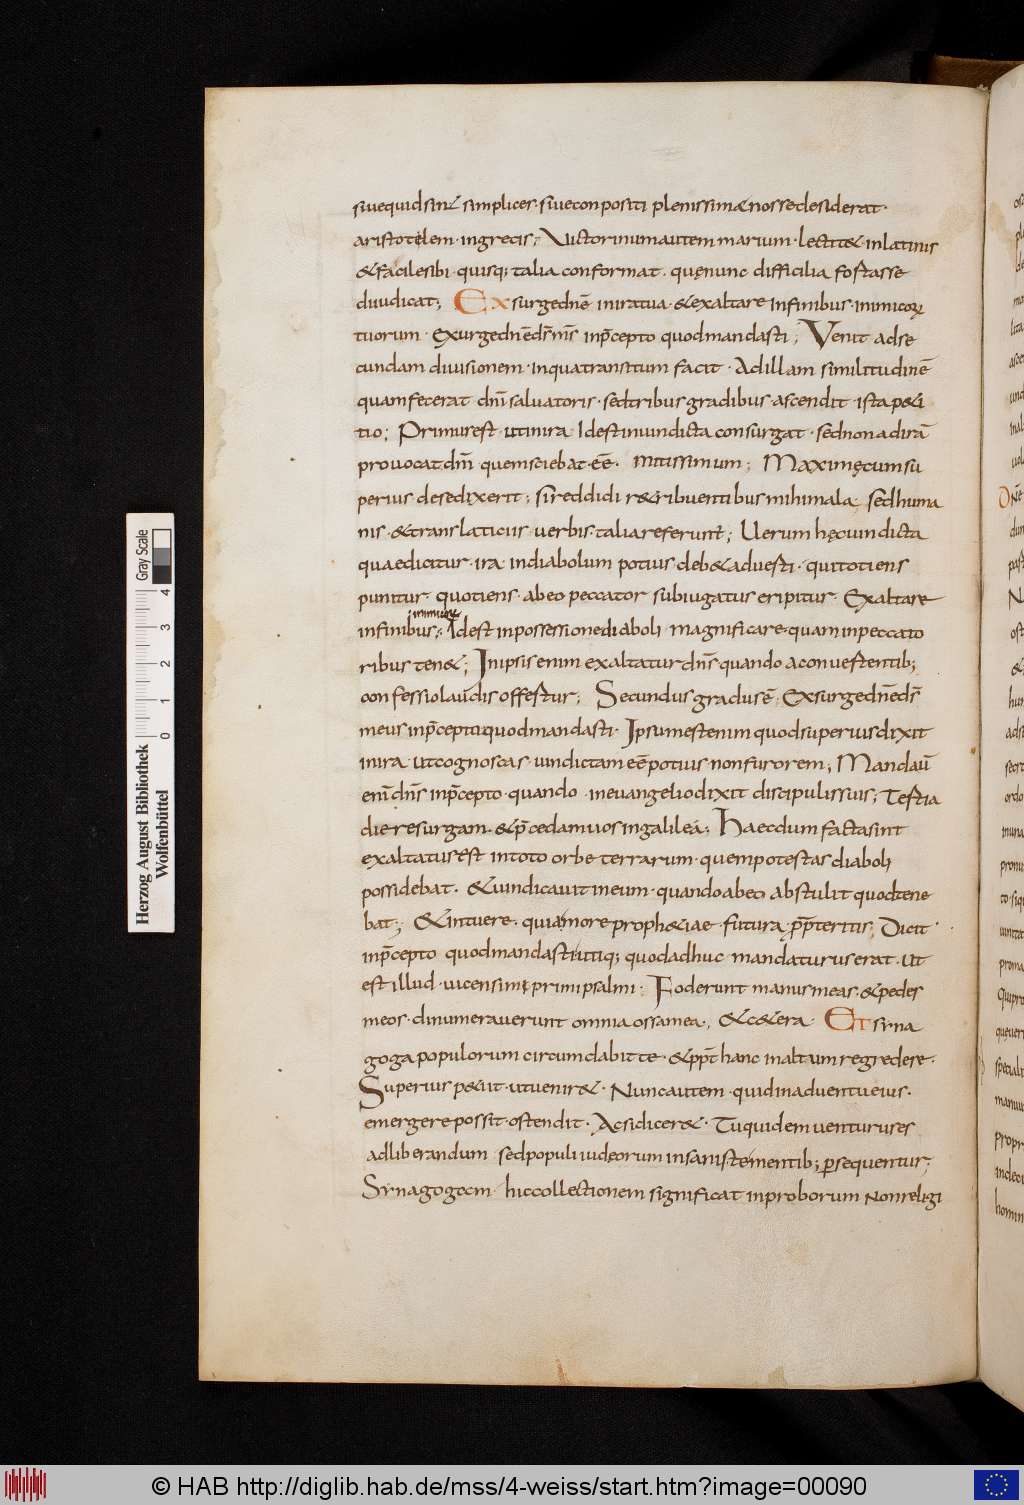 siuequidsin& simplices· siueconpositi plenissimæ nossedesiderat·
aristotelem· ingrecis; Uictorinumautem marium· lectit& inlatinis
&facilesibi· quisq; talia conformat· quęnunc difficilia fortasse
diuidicat; Exsurgednē iniratua· &exaltare infinibus· inimicorꝝ
tuorum· Exurgednēds̄ms̄ inp̄cepto quodmandasti; Venit adse
cundam diuisionem· inquatransitum facit· Adillam similitudinē
quamfecerat dnī saluatoris· sedtribus gradibus· ascendit istap&i
tio; Primusest· utinira idestinuindicta consurgat· sednonadirā
prouocatdnm̄ quemsciebat· eē· mitissimum; Maximęcumsu
perius desedixerit; sireddidi r&ribuentibus mihimala· sedhuma
nis· &translaticiis uerbis· taliareferunt; Uerum hęcuindicta
quaedicitur· ira indiabolum potius· deb&aduerti· quitotiens
punitur quotiens· abeo peccator subiugatus eripitur· Exaltare
inimicorꝝ
infinibus; Idest inpossessionediaboli magnificare· quam inpeccato
ribus ten&; Inipsis enim exaltaturdns̄ quando aconuertentib;
confessiolaudis offertur; Secundus gradusē· Exsurgednēds̄
meus inp̄ceptoquodmandasti· Ipsumestenim quodsuperiusdixit
inira utcognoscas· uindictam eē potius nonfurorem; Mandauī
enī dns̄ inp̄cepto· quando· ineuangeliodixit discipulissuis; Tertia
die resurgam· &p̄cedamuos ingalilea; Haecdum factasint
exaltatusest intoto orbe terrarum· quempotestas diaboli
possidebat· &uindicauit meum· quandoabeo abstulit quodtene
bat; &intuere· quiamore proph&iae· futura· pp̄teritis; Dicit
inp̄cepto quodmandastiutiq; quodadhuc mandaturuserat· ut
est illud· uicensimę primipsalmi· Foderunt manusmeas· &pedes
meos· dinumerauerunt omnia ossamea; &c&era· Et syna
gogapopulorum circumdabit te· &ppt̄ hanc inaltumregredere·
Superius p&iit· utuenir&· Nuncautem· quidinaduentueius·
emergere possit· ostendit· Acsidicer&· Tuquidem uenturuses
adliberandum sedpopuli iudęorum insanistementib; persequentur;
Synagogęcm̄ hiccollectionem significat inproborum nonreligi